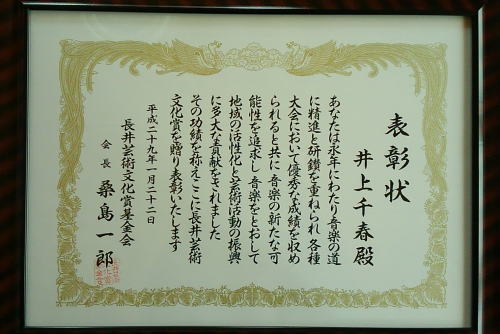 表彰状
井上千春殿
あなたは永年にわたり音楽の道
に精進と研鑽を重ねられ各種
大会において優秀な成績を収め
られると共に音楽の新たな可
能性を追求し音楽をとおして
地域の活性化と芸術活動の振興
に多大な貢献をされました
その功績を称えここに長井芸術
文化賞を贈り表彰いたします
平成二十九年一月二十二日
長井芸術文化賞基金会
会長 桑島一郎